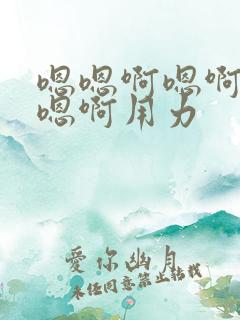 嗯嗯啊嗯啊
嗯啊用力
爱你幽月
未经同意禁止转载